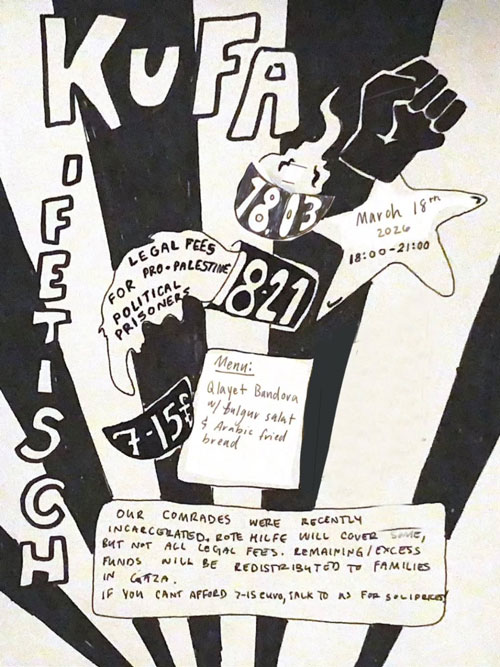 KUFA
K'FETISCH
18.03
March 18th
2026
18:00-21:00
LEGAL FEES
FOR PRO-PALESTINE
POLITICAL
PRISONERS
18-21
Menu:
Qlayet Bandora
w/ bulgur salat
& Arabic fried
bread
7-15€
OUR COMRADES WERE RECENTLY
INCARCERATED. ROTE HILFE WILL COVER SOME,
BUT NOT ALL LEGAL FEES. REMAINING/EXCESS
FUNDS WILL BE REDISTRIBUTED TO FAMILIES
IN GAZA.
IF YOU CANT AFFORD 7-15 EURO, TALK TO US FOR SOLIPRICES